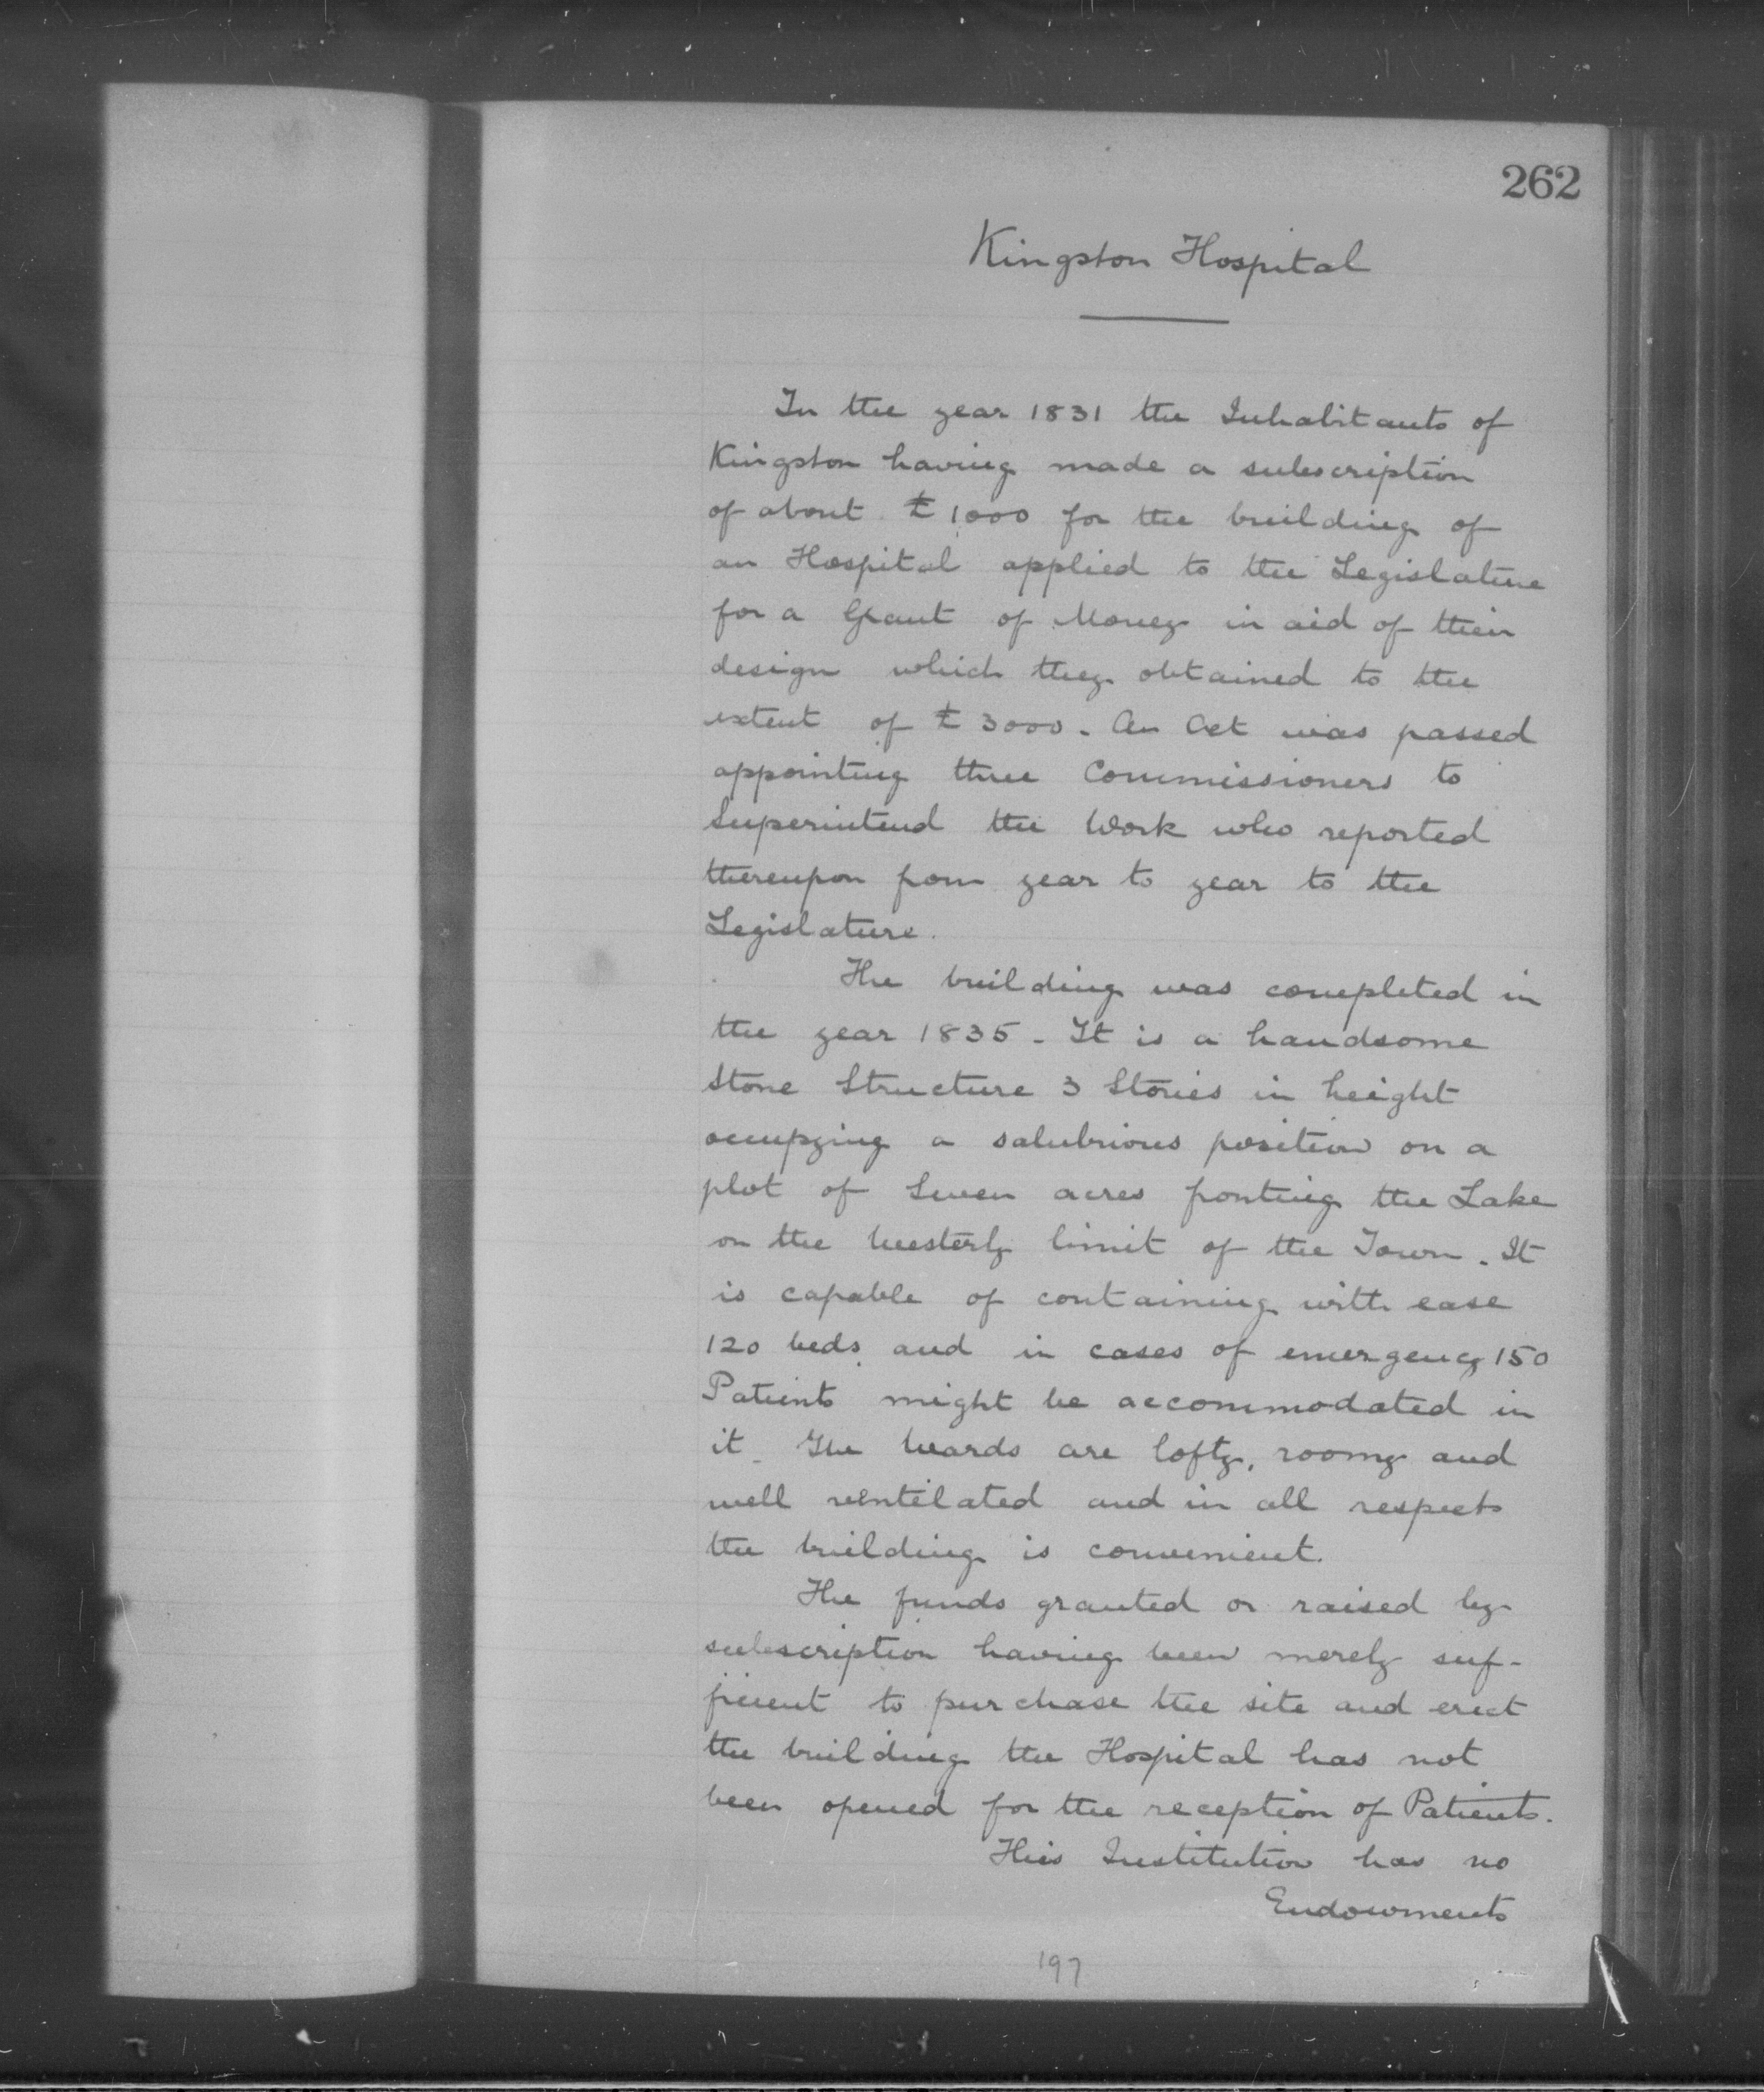 262
Kingston Hospital
In the year 1831 the Inhabitants of
Kingston having made a subscription
of about £1000 for the building of
an Hospital applied to the Legislature
for a Grant of Money in aid of their
design which they obtained to the
extent of £3000. An Act was passed
appointing three Commissioners to
Superintend the Work who reported
thereupon from year to year to the
Legislature.
The building was completed in
the year 1835 - It is a handsome
Stone Structure 3 Stories in height
occupying a salubrious position on a
plot of Seven acres fronting the Lake
on the Westerly limit of the Town. It
is capable of containing with ease
120 beds and in cases of emergency 150
Patients might be accommodated in
it. The Wards are lofty, roomy and
well ventilated and in all respects
the building is convenient.
The funds granted or raised by
subscription having been merely suf-
ficient to purchase the site and erect
the building the Hospital has not
been opened for the reception of Patients.
This Institution has no
Endowments
197